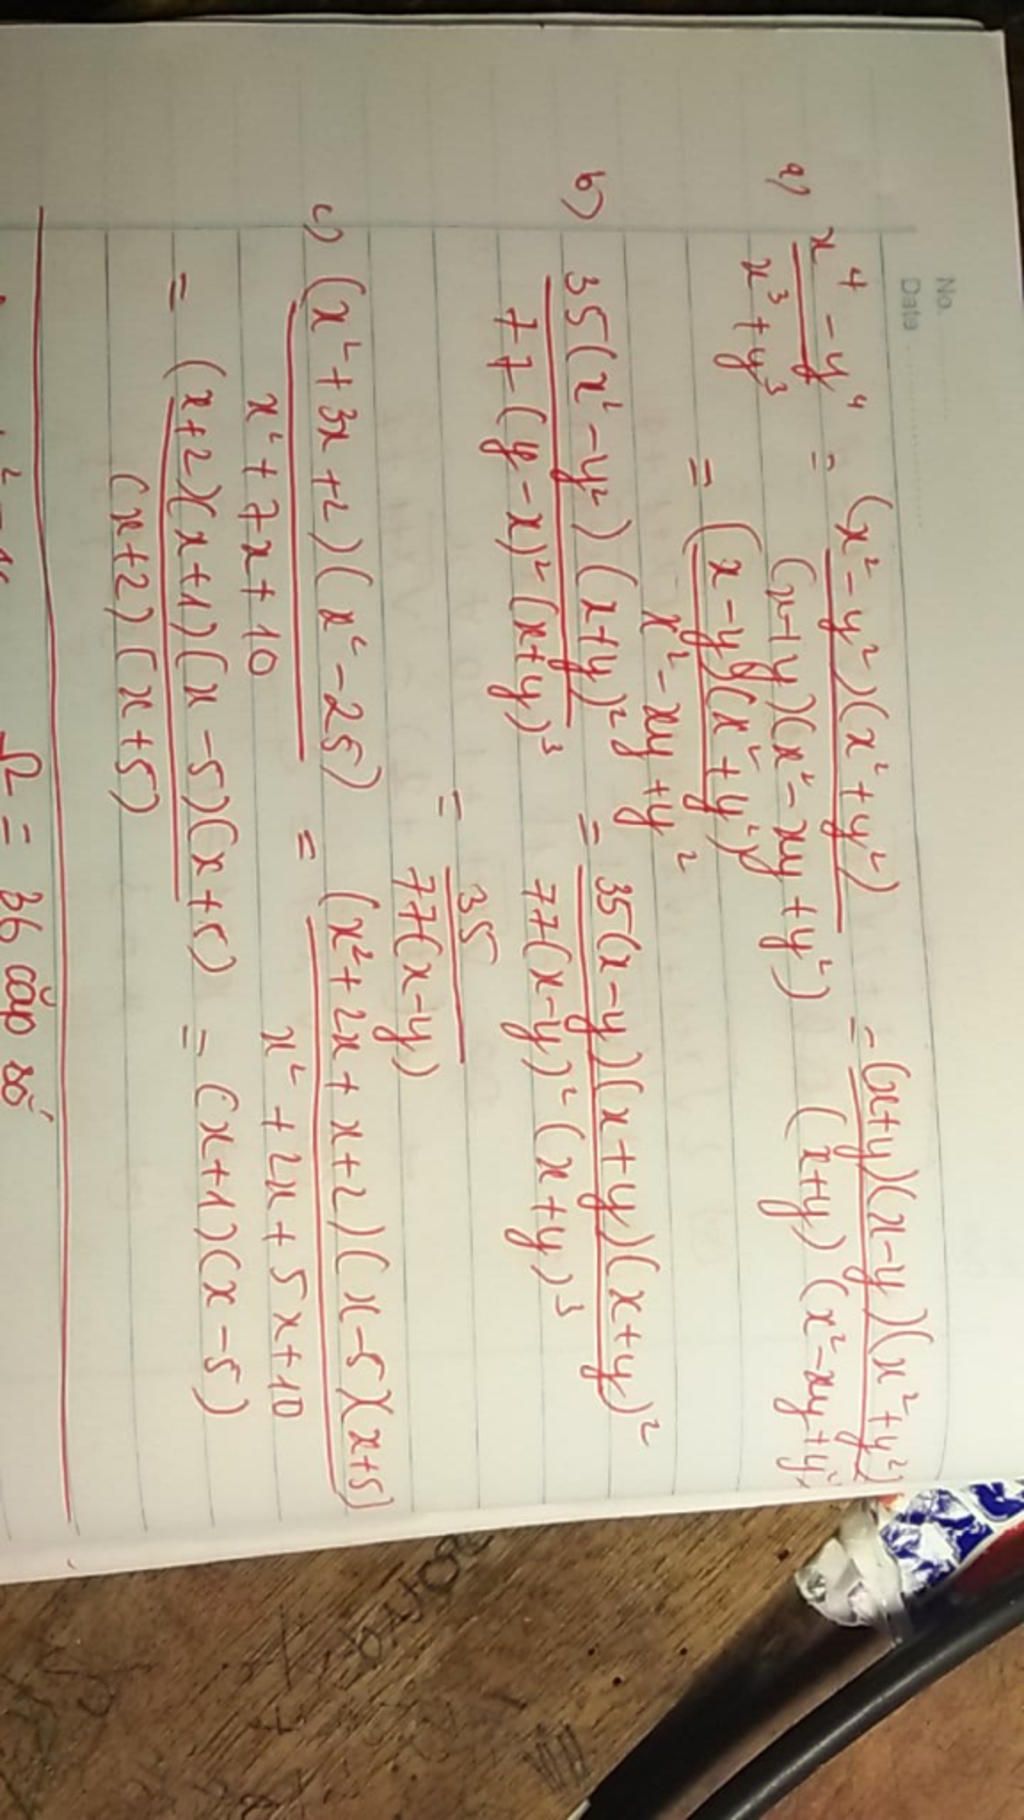 No.
Date
a) x⁴ - y⁴ / x³ + y³ = (x² - y²)(x² + y²) / (x+y)(x² - xy + y²) = (x+y)(x-y)(x² + y²) / (x+y)(x² - xy + y²
= (x-y)(x² + y²) / x² - xy + y²
b) 35(x² - y²)(x+y)² / 77(y-x)²(x+y)³ = 35(x-y)(x+y)(x+y)² / 77(x-y)²(x+y)³
= 35 / 77(x-y)
c) (x² + 3x + 2)(x² - 25) / x² + 7x + 10 = (x² + 2x + x + 2)(x-5)(x+5) / x² + 2x + 5x + 10
= (x+2)(x+1)(x-5)(x+5) / (x+2)(x+5) = (x+1)(x-5)
= 36 cặp số